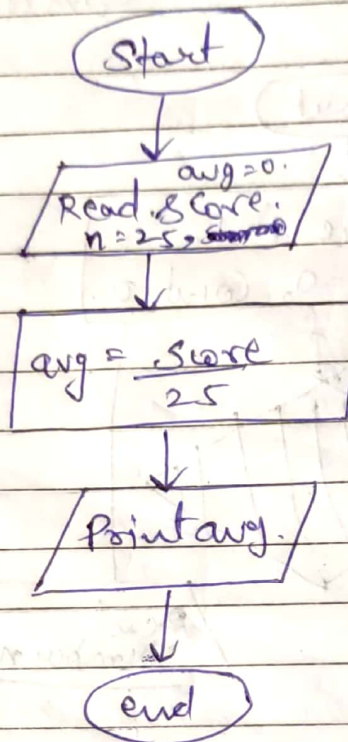 Start
avg=0.
Read score.
n=25,
avg = score
25
Print avg.
end